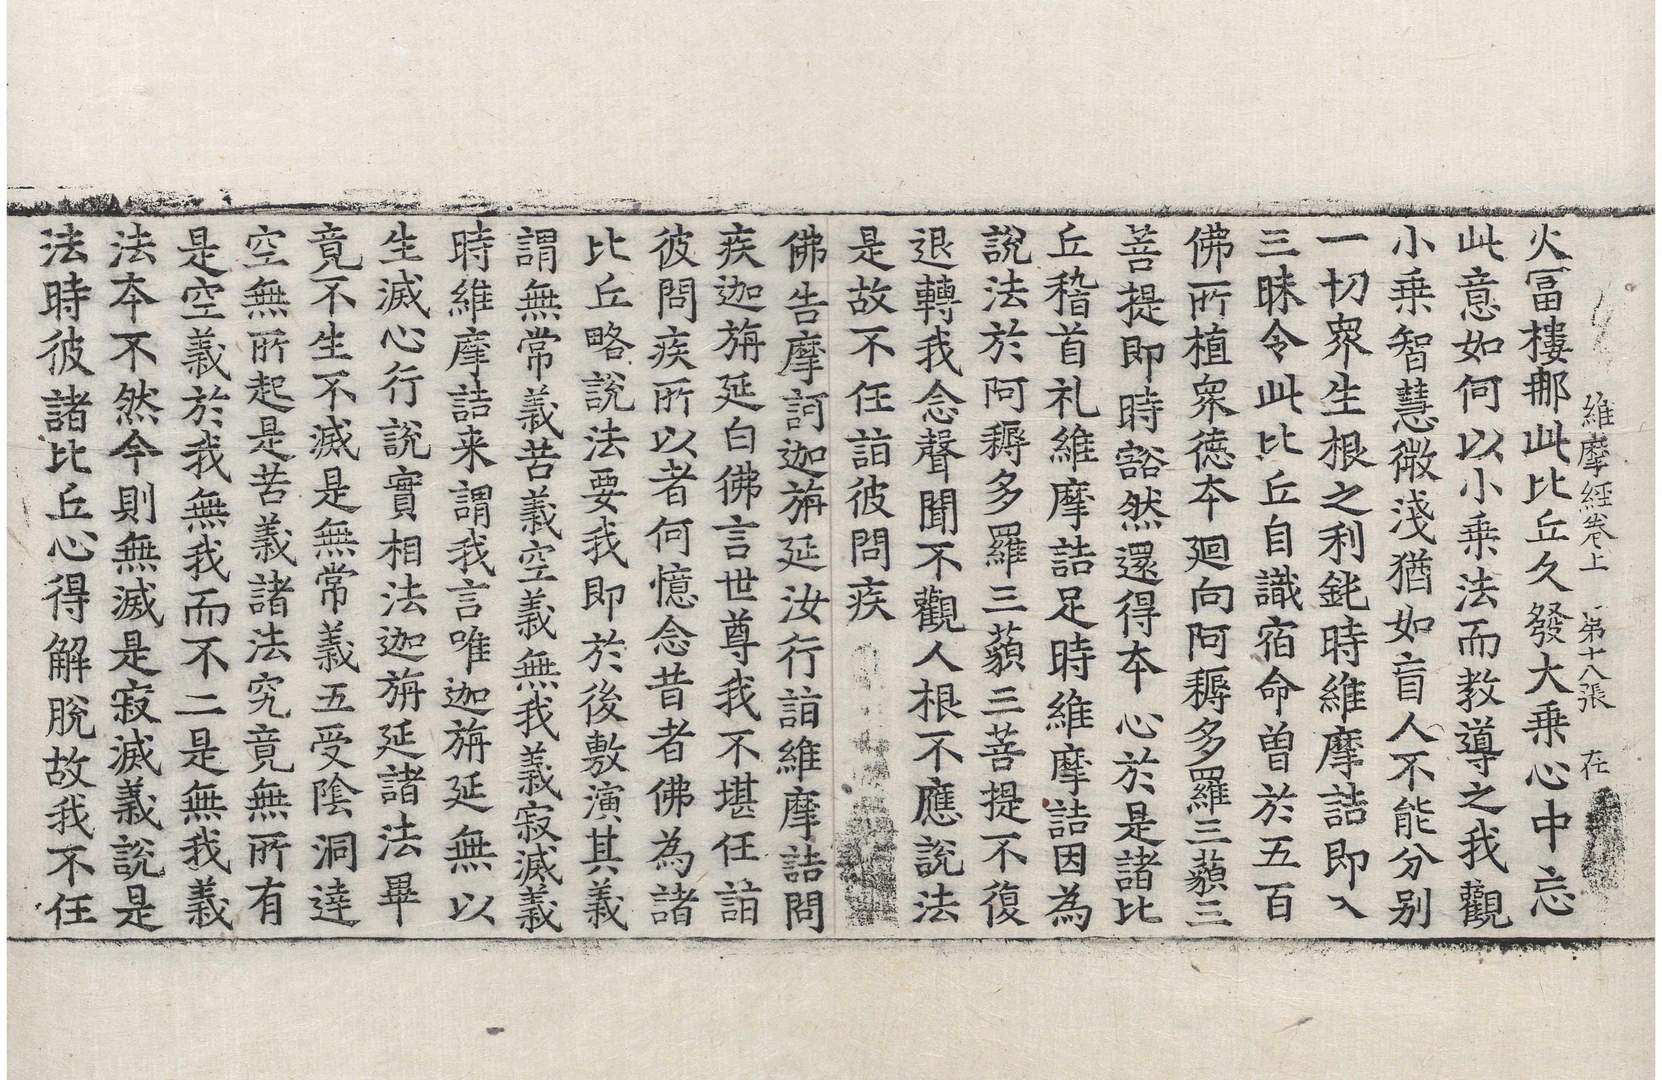 維摩經卷上 第十八張 在
火富樓那此比丘久發大乗心中忘
此意如何以小乗法而教導之我觀
小乗智慧微淺猶如盲人不能分別
一切衆生根之利鈍時維摩詰即入
三昧令此比丘自識宿命曽於五百
佛所植衆徳夲廻向阿耨多羅三藐三
菩提即時豁然還得夲心於是諸比
丘稽首礼維摩詰足時維摩詰因為
説法於阿耨多羅三藐三菩提不復
退轉我念聲聞不觀人根不應説法
是故不任詣彼問疾
佛告摩訶迦旃延汝行詣維摩詰問
疾迦旃延白佛言世尊我不堪任詣
彼問疾所以者何憶念昔者佛為諸
比丘略説法要我即於後敷演其義
謂無常義苦義空義無我義寂滅義
時維摩詰来謂我言唯迦旃延無以
生滅心行説實相法迦旃延諸法畢
竟不生不滅是無常義五受陰洞達
空無所起是苦義諸法究竟無所有
是空義於我無我而不二是無我義
法夲不然今則無滅是寂滅義説是
法時彼諸比丘心得解脱故我不任